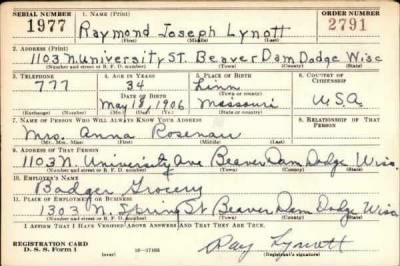 SERIAL NUMBER 1. NAME (Print) ORDER NUMBER
1977 Raymond Joseph Lynott 2791
(First) (Middle) (Last)
2. ADDRESS (Print)
1103 N. University St. Beaver Dam Dodge Wisc
(Number and street or R. F. D. number) (Town) (County) (State)
3. TELEPHONE 4. AGE IN YEARS 5. PLACE OF BIRTH 6. COUNTRY OF CITIZENSHIP
777 34 Linn
DATE OF BIRTH (Town or county)
May 18, 1906 Missouri U.S.A.
(Exchange) (Number) (Mo.) (Day) (Yr.) (State or country)
7. NAME OF PERSON WHO WILL ALWAYS KNOW YOUR ADDRESS 8. RELATIONSHIP OF THAT PERSON
Mrs. Anna Rosenau
(Mr., Mrs., Miss) (First) (Middle) (Last)
9. ADDRESS OF THAT PERSON
1103 N. University Ave Beaver Dam Dodge Wisc.
(Number and street or R. F. D. number) (Town) (County) (State)
10. EMPLOYER'S NAME
Badger Grocery
11. PLACE OF EMPLOYMENT OR BUSINESS
1303 N. Spring St Beaver Dam Dodge Wisc
(Number and street or R. F. D. number) (Town) (County) (State)
I AFFIRM THAT I HAVE VERIFIED ABOVE ANSWERS AND THAT THEY ARE TRUE.
REGISTRATION CARD
D. S. S. Form 1 (over) 16—17105 Ray Lynott
(Registrant's signature)